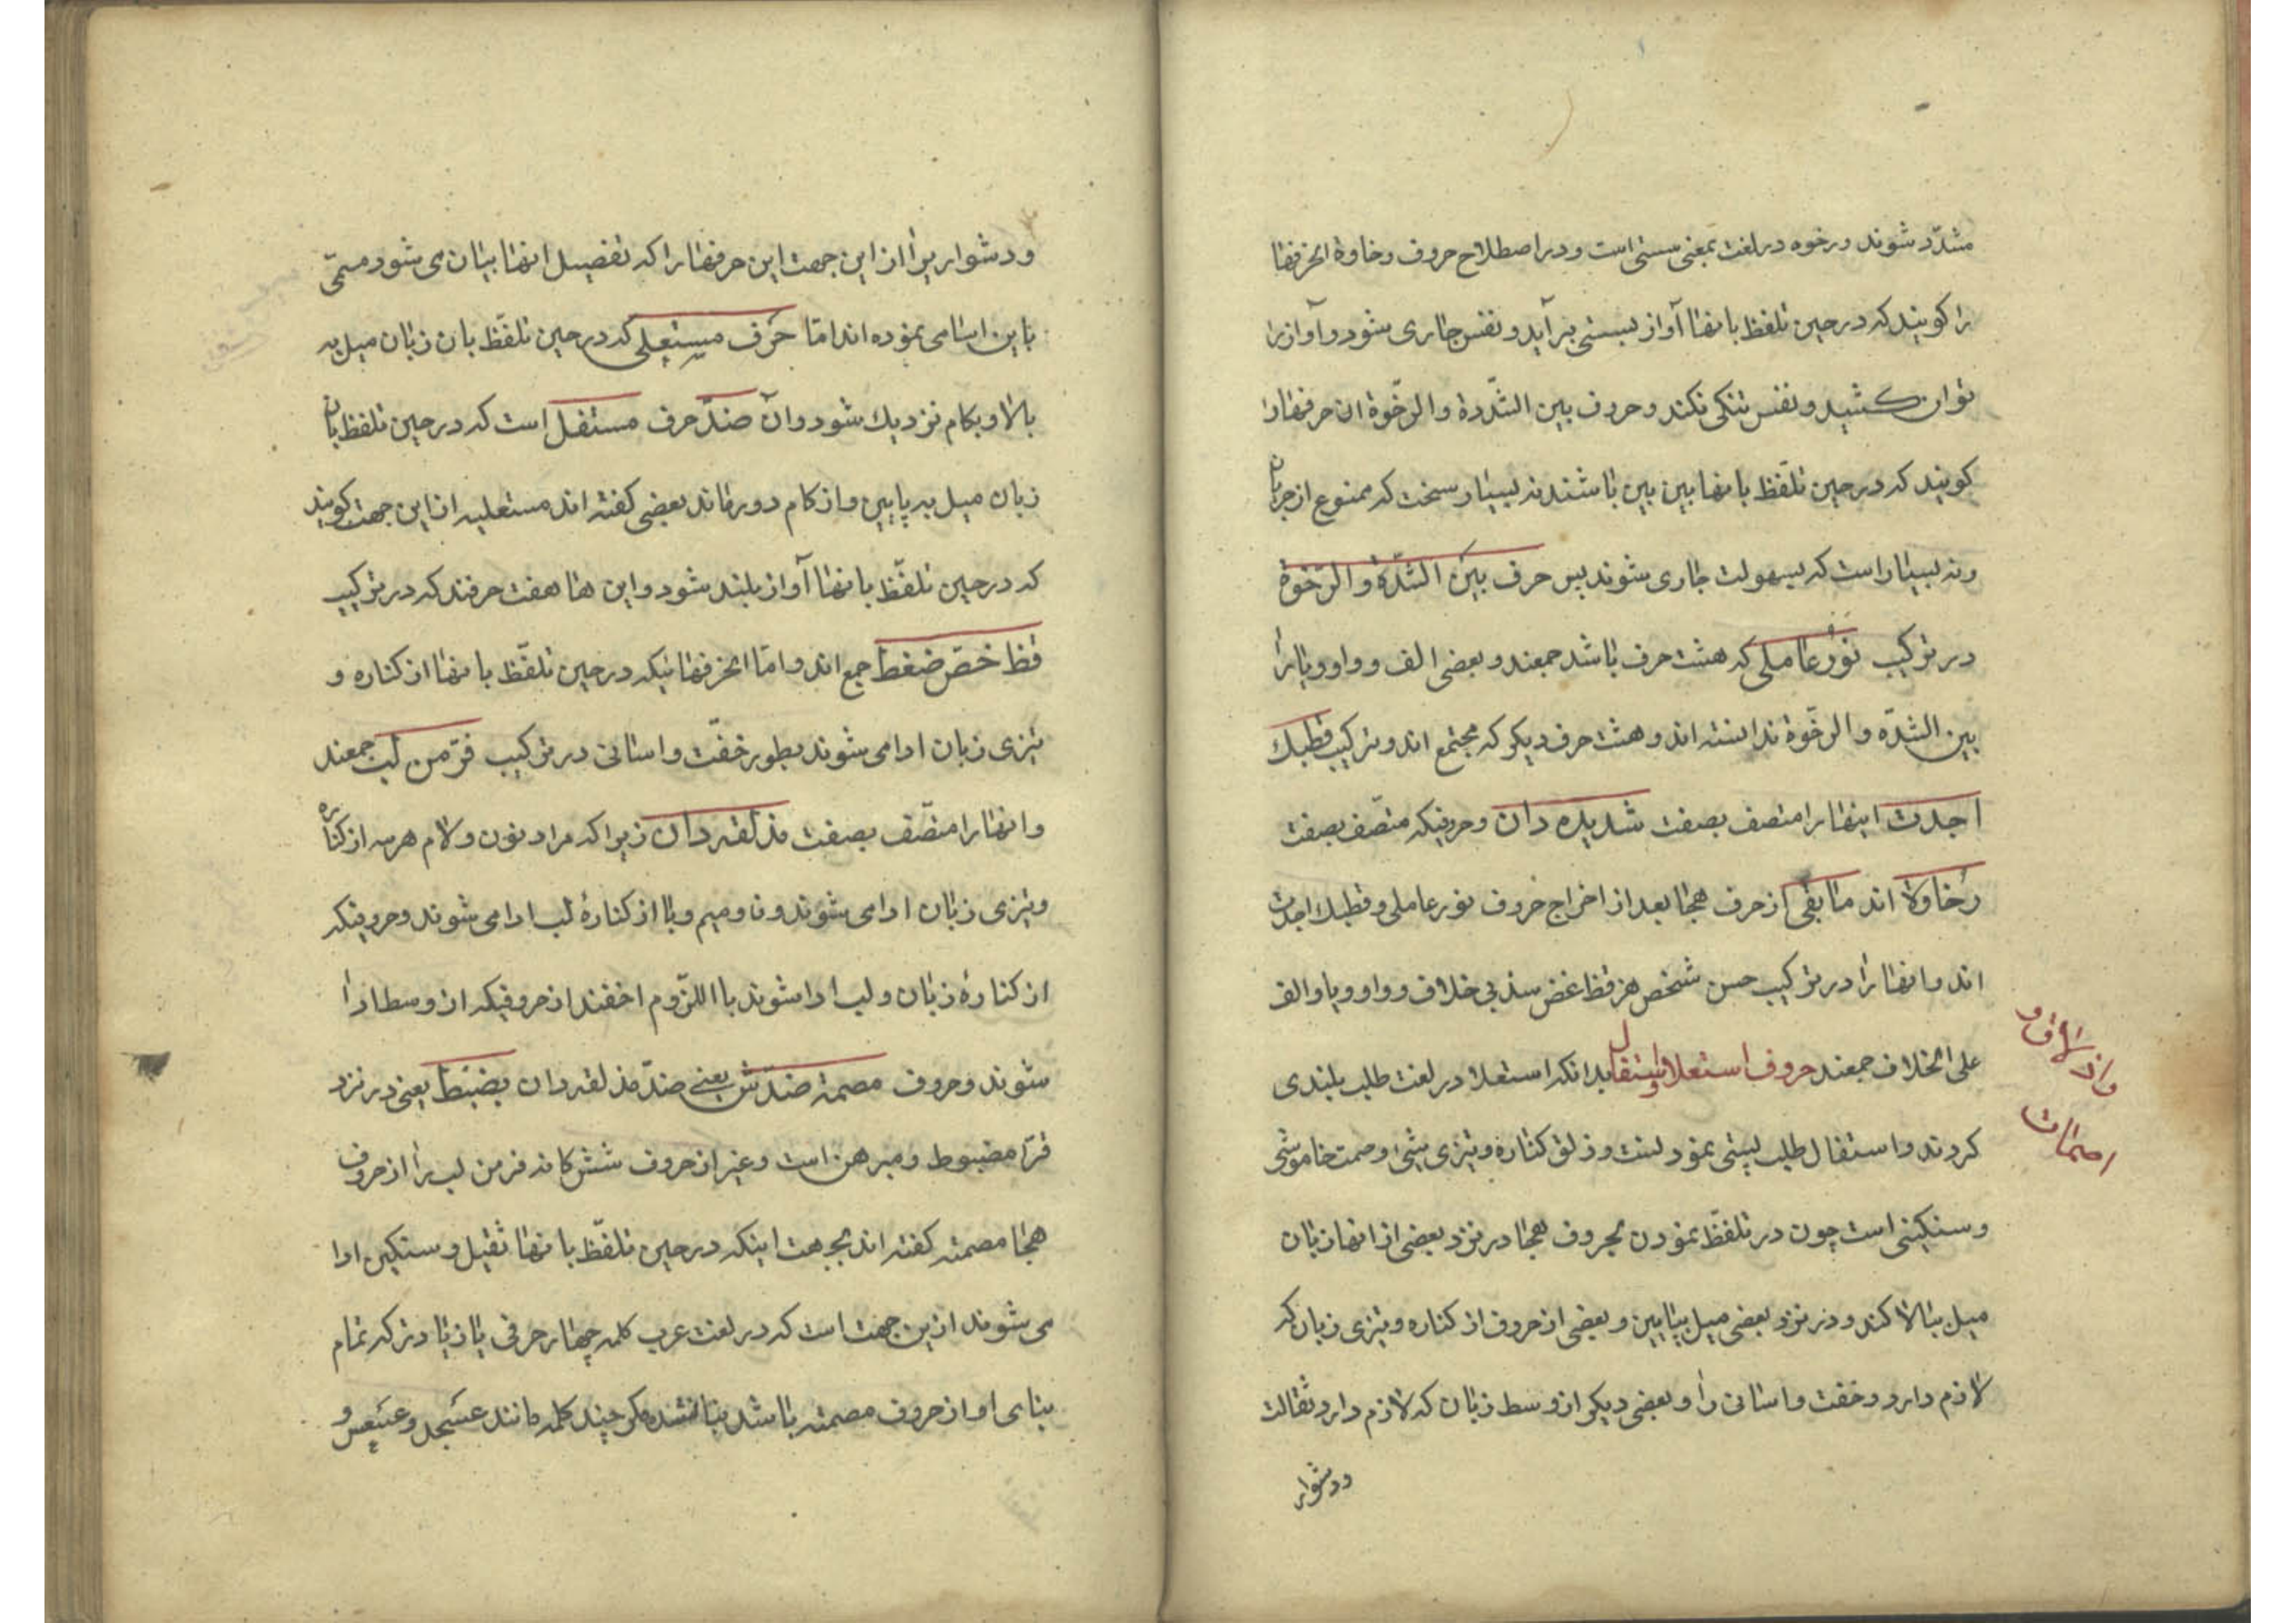 مشدّد شوند و رخوه در لغت بمعنی سستی است و در اصطلاح حروف رخاوة انحرفها
را کویند که در حین تلفظ بانها آواز بسستی بر آید و نفس جاری شود و آواز را
توان کشید و نفس تنکی نکند و حروف بین الشّدة والرخّوة ان حرفها را
کویند که در حین تلفّظ بانها بین بین باشند نه بسیار سخت که ممنوع از جریان
و نه بسیار است که بسهولت جاری شوند پس حرف بین الشدّة والرّخوة
در ترکیب نور عاملی که هشت حرف باشد جمعند و بعضی الف و واو و یا را
بین الشدّه والرخّوة ندانسته اند و هشت حرف دیکر که مجتمع اند و ترکیب قطبک
اجدت اینها را متصف بصفت شدیده دان و حروفیکه متصّف بصفت
رخاوة اند ما بقی از حرف هجا بعد از اخراج حروف نور عاملی و قطبک اجدت
اند و انها را در ترکیب حسن شخص هز فظ غض سذ بی خلاف و واو و یا و الف
علی الخلاف جمعند حروف استعلا و استفال بدانکه استعلا در لغت طلب بلندی
کردند و استفال طلب پستی نمودنست و ذلق کناره و تیزی شئ و صمت خاموشی
و سنکینی است چون در تلفّظ نمودن بحروف هجا در نزد بعضی از انها زبان
میل ببالا کند و در نزد بعضی میل بپایین و بعضی از حروف از کناره و تیزی زبان که
لازم دارد و خفت و اسانی را و بعضی دیکر از وسط زبان که لازم دارد ثقالت
ودشوار
والاذلاق و
اصمات
و دشواریرا از این جهت این حرفها را که تفصیل انها بیان می شود مسمّی
باین اسامی نموده اند امّا حرف مستعلی که در حین تلفّظ بان زبان میل به
بالا و بکام نزدیک شود و آن ضدّ حرف مستفل است که در حین تلفظ بان
زبان میل به پایین و از کام دور ماند بعضی کفته اند مستعلیه از این جهت کویند
که در حین تلفّظ بانها آواز بلند شود و این ها هفت حرفند که در ترکیب
قظ خصّ ضغط جمع اند و امّا انحرفهائیکه در حین تلفّظ بانها از کناره و
تیزی زبان ادا می شوند بطور خفّت و اسانی در ترکیب فرّ من لب جمعند
و انها را متصّف بصفت مذلقه دان زیرا که مراد نون و لام هر سه از کناره
و تیزی زبان ادا می شوند و فا و میم و با از کنارهٔ لب ادا می شوند و حروفیکه
از کنارهٔ زبان و لب ادا شوند با اللزّوم اخفند از حروفیکه از وسط ادا
شوند و حروف مصمته ضدّش یعنی ضدّ مذلقه دان بضبط یعنی در نزد
قرّا مضبوط و مبرهن است و غیر از حروف شش کانه فر من لب را از حروف
هجا مصمته کفته اند بجهت اینکه در حین تلفّظ بانها ثقیل و سنکین ادا
می شوند از ین جهت است که در لغت عرب کلمه چهار حرفی یا زیادتر که تمام
بنای او از حروف مصمته باشد بنا نشده مکر چند کلمه مانند عسجد و